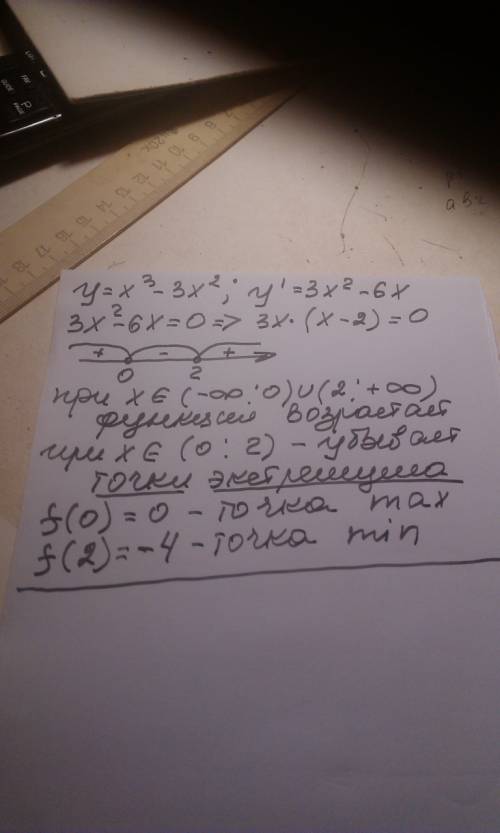 y=x³-3x²; y'=3x²-6x
3x²-6x=0=> 3x·(x-2)=0
+ - +
0 2
при x∈(-∞;0)∪(2;+∞)
функция возрастает
при x∈ (0;2) - убывает
точки экстремума
f(0)=0 - точка max
f(2)=-4 - точка min